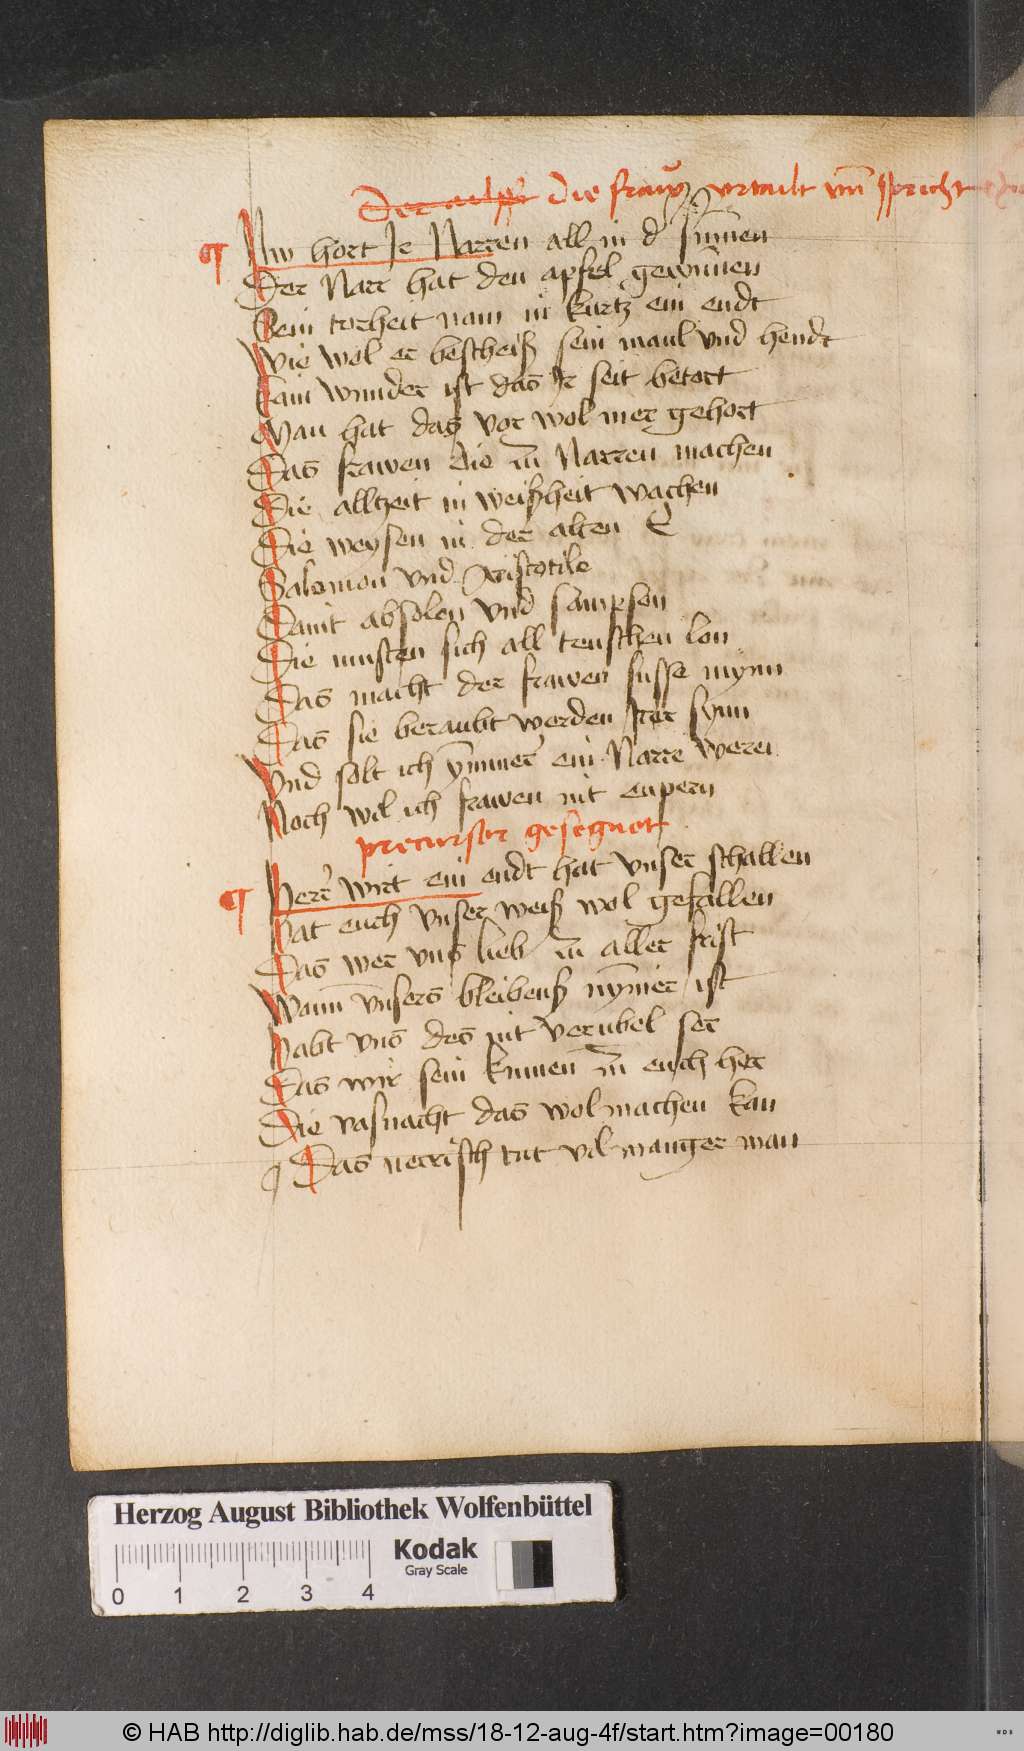 Der ailfft die fraw vrtailt vnd spricht
¶ Nw hort Ir Narren all in d sinnen
Der Narr hat den apfel gewunnen
Sein torheit nam in kurtz ein endt
Wie wol er bescheiß sein maul vnd hendt
Kain wunder ist das Ir seit betort
Man hat das vor wol mer gehort
Das frawen die zu Narren machen
Die alltzeit in weißheit wachen
Die weysen in der alten E
Salomon vnd Aristotile
Dauit absolon vnd sampson
Die musten sich all teuschen lon
Das macht der frawen susse mynn
Das sie beraubt werden Irer synn
Vnd solt ich ymmer ein Narre weren
Noch wil ich frawen nit enpern
precursor gesegnet
¶ Herr wirt ein endt hat vnser schallen
Hat euch vnser weiß wol gefallen
Das wer vns lieb zu aller frist
Wann vnsers bleibens nymer ist
Habt vns des nit verubel ser
Das wir sein kumen zu euch her
Die vasnacht das wol machen kan
Das nerrisch tut vil manger man
Herzog August Bibliothek Wolfenbüttel
Kodak
Gray Scale
0 1 2 3 4
© HAB http://diglib.hab.de/mss/18-12-aug-4f/start.htm?image=00180